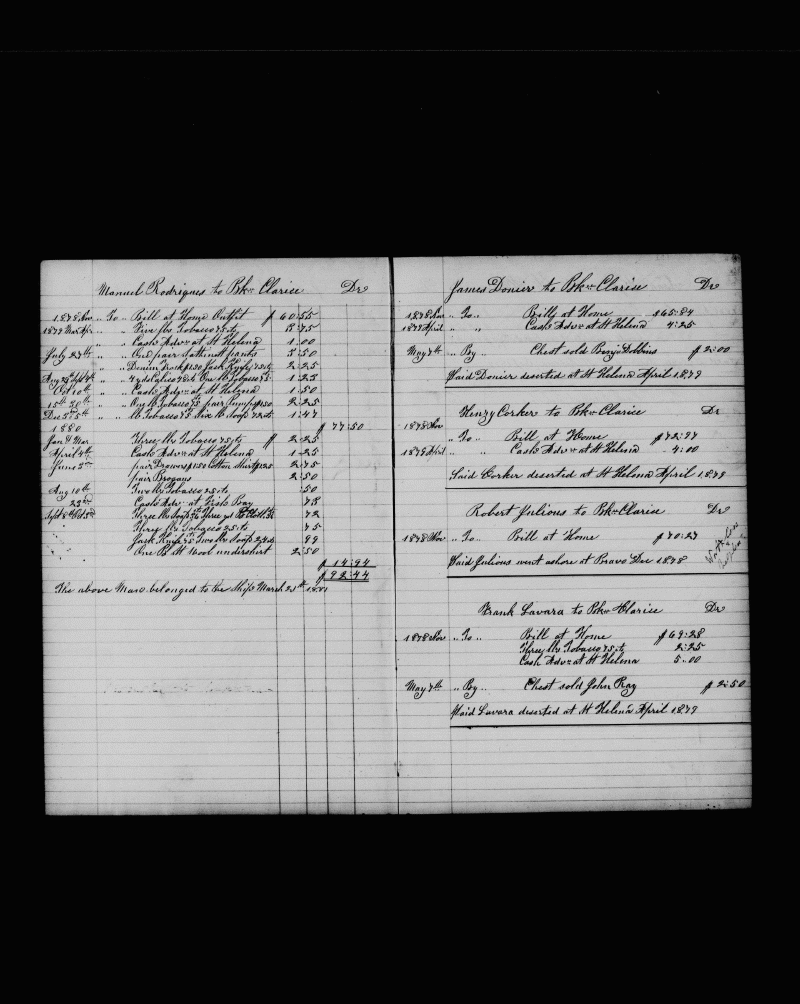 Manuel Rodrigues to Bkn Clarice Dr
1878 Nov " To " Bill at Home Outfit $ 60.55
1879 Mar Apr " " Five lbs Tobacco 75cts 3.75
" " Cash Advn at St Helena 1.00
July 27th " " One pair Sattinett pants 3.50
" " Denim Frock $1.50 Jack Knife 75cts 2.25
" " 4 yds Calico One lb Tobacco 75 1.23
Oct 10th " " Cash Advn at St Helena 1.50
15th 20th " " One lb Tobacco 75 pair Pumps $1.50 2.25
Dec 5th " " lb Tobacco 75 Soap 72cts 1.47
$ 77.50
1880
Jan & Mar Three lbs Tobacco 75cts $ 2.25
April 4th Cash Advn at St Helena 1.25
June pair Drawers $1.50 Cotton Shirt $1.25 2.75
pair Brogans 2.50
Aug 10th Two lbs Tobacco 25cts .50
23rd Cash Advn at 73
Sept 8th Three lbs Soap Three yds 72
Three lbs Tobacco 25cts 75
Jack Knife 75 Two lbs Soap 24cts 99
One B St Wool undershirt 2.50
$ 14.94
$ 92.44
The above Man belonged to the Ship March 25th 1881
James Donier to Bkn Clarise Dr
1878 Nov " To " Bill at Home $65.84
1879 April " " Cash Advn at St Helena 4.25
May 7th " By " Chest sold Benj Dobbins $ 2.00
Said Donier deserted at St Helena April 1879
Henry Corker to Bkn Clarice Dr
1878 Nov
" To " Bill at Home $72.97
1879 April " " Cash Advn at St Helena 4.00
Said Corker deserted at St Helena April 1879
Robert Julious to Bkn Clarise Dr
1878 Nov " To " Bill at Home $ 70.27
Said Julious went ashore at Bravo Dec 1878
Frank Lavara to Bkn Clarice Dr
1878 Nov " To " Bill at Home $69.28
Three lbs Tobacco 75cts 2.25
Cash Advn at St Helena 5.00
May 7th " By " Chest sold John Ray $ 2.50
Said Lavara deserted at St Helena April 1879